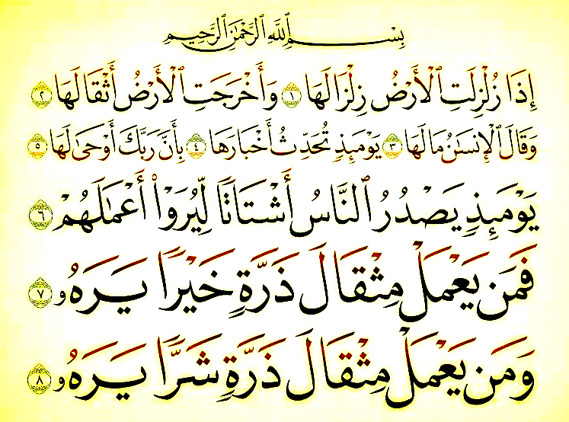 بِسْمِ ٱللَّهِ ٱلرَّحْمَٰنِ ٱلرَّحِيمِ
إِذَا زُلْزِلَتِ ٱلْأَرْضُ زِلْزَالَهَا ١ وَأَخْرَجَتِ ٱلْأَرْضُ أَثْقَالَهَا ٢
وَقَالَ ٱلْإِنسَٰنُ مَا لَهَا ٣ يَوْمَئِذٍ تُحَدِّثُ أَخْبَارَهَا ٤ بِأَنَّ رَبَّكَ أَوْحَىٰ لَهَا ٥
يَوْمَئِذٍ يَصْدُرُ ٱلنَّاسُ أَشْتَاتًا لِّيُرَوْا۟ أَعْمَٰلَهُمْ ٦
فَمَن يَعْمَلْ مِثْقَالَ ذَرَّةٍ خَيْرًا يَرَهُۥ ٧
وَمَن يَعْمَلْ مِثْقَالَ ذَرَّةٍ شَرًّا يَرَهُۥ ٨